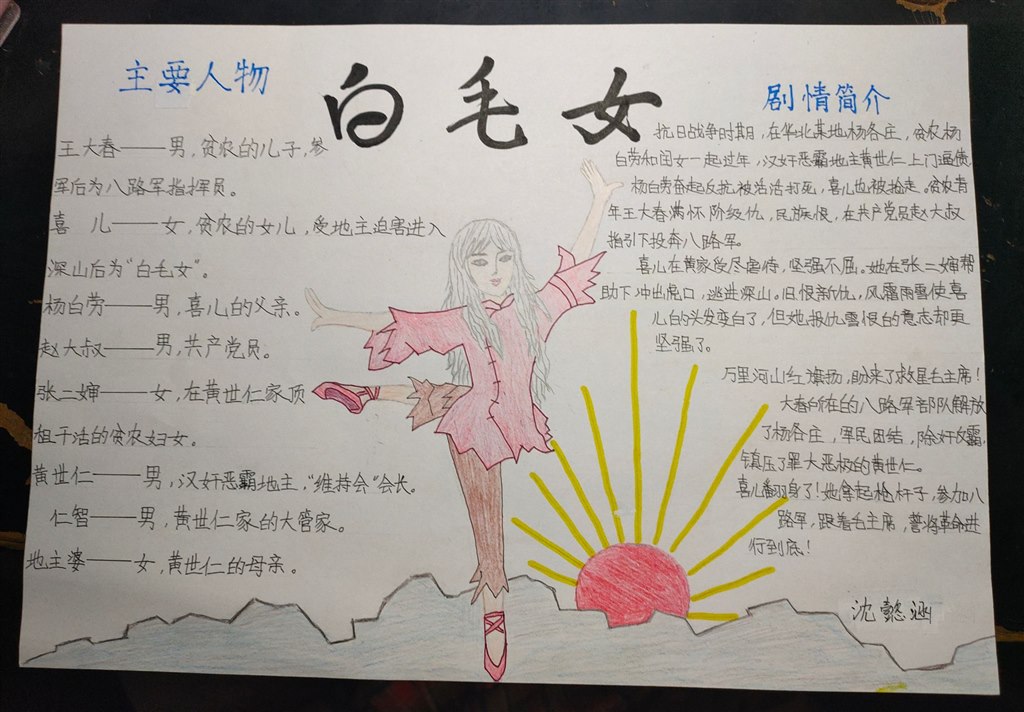 白毛女
主要人物
王大春——男,贫农的儿子,参
军后为八路军指挥员。
喜 儿——女,贫农的女儿,受地主迫害进入
深山后为"白毛女"。
杨白劳——男,喜儿的父亲。
赵大叔——男,共产党员。
张二婶——女,在黄世仁家顶
租干活的贫农妇女。
黄世仁——男,汉奸恶霸地主,"维持会"会长。
仁智——男,黄世仁家的大管家。
地主婆——女,黄世仁的母亲。
剧情简介
抗日战争时期,在华北某地杨各庄,贫农杨
白劳和闺女一起过年,汉奸恶霸地主黄世仁上门逼债
杨白劳奋起反抗被活活打死,喜儿也被抢走。贫农青
年王大春满怀阶级仇,民族恨,在共产党员赵大叔
指引下投奔八路军。
喜儿在黄家受尽虐待,坚强不屈。她在张二婶帮
助下冲出虎口,逃进深山。旧恨新仇,风霜雨雪使喜
儿的头发变白了,但她报仇雪恨的意志却更
坚强了。
万里河山红旗扬,盼来了救星毛主席!
大春所在的八路军部队解放
了杨各庄,军民团结,除奸反霸,
镇压了罪大恶极的黄世仁。
喜儿翻身了!她拿起枪杆子,参加八
路军,跟着毛主席,誓将革命进
行到底!
沈懿涵